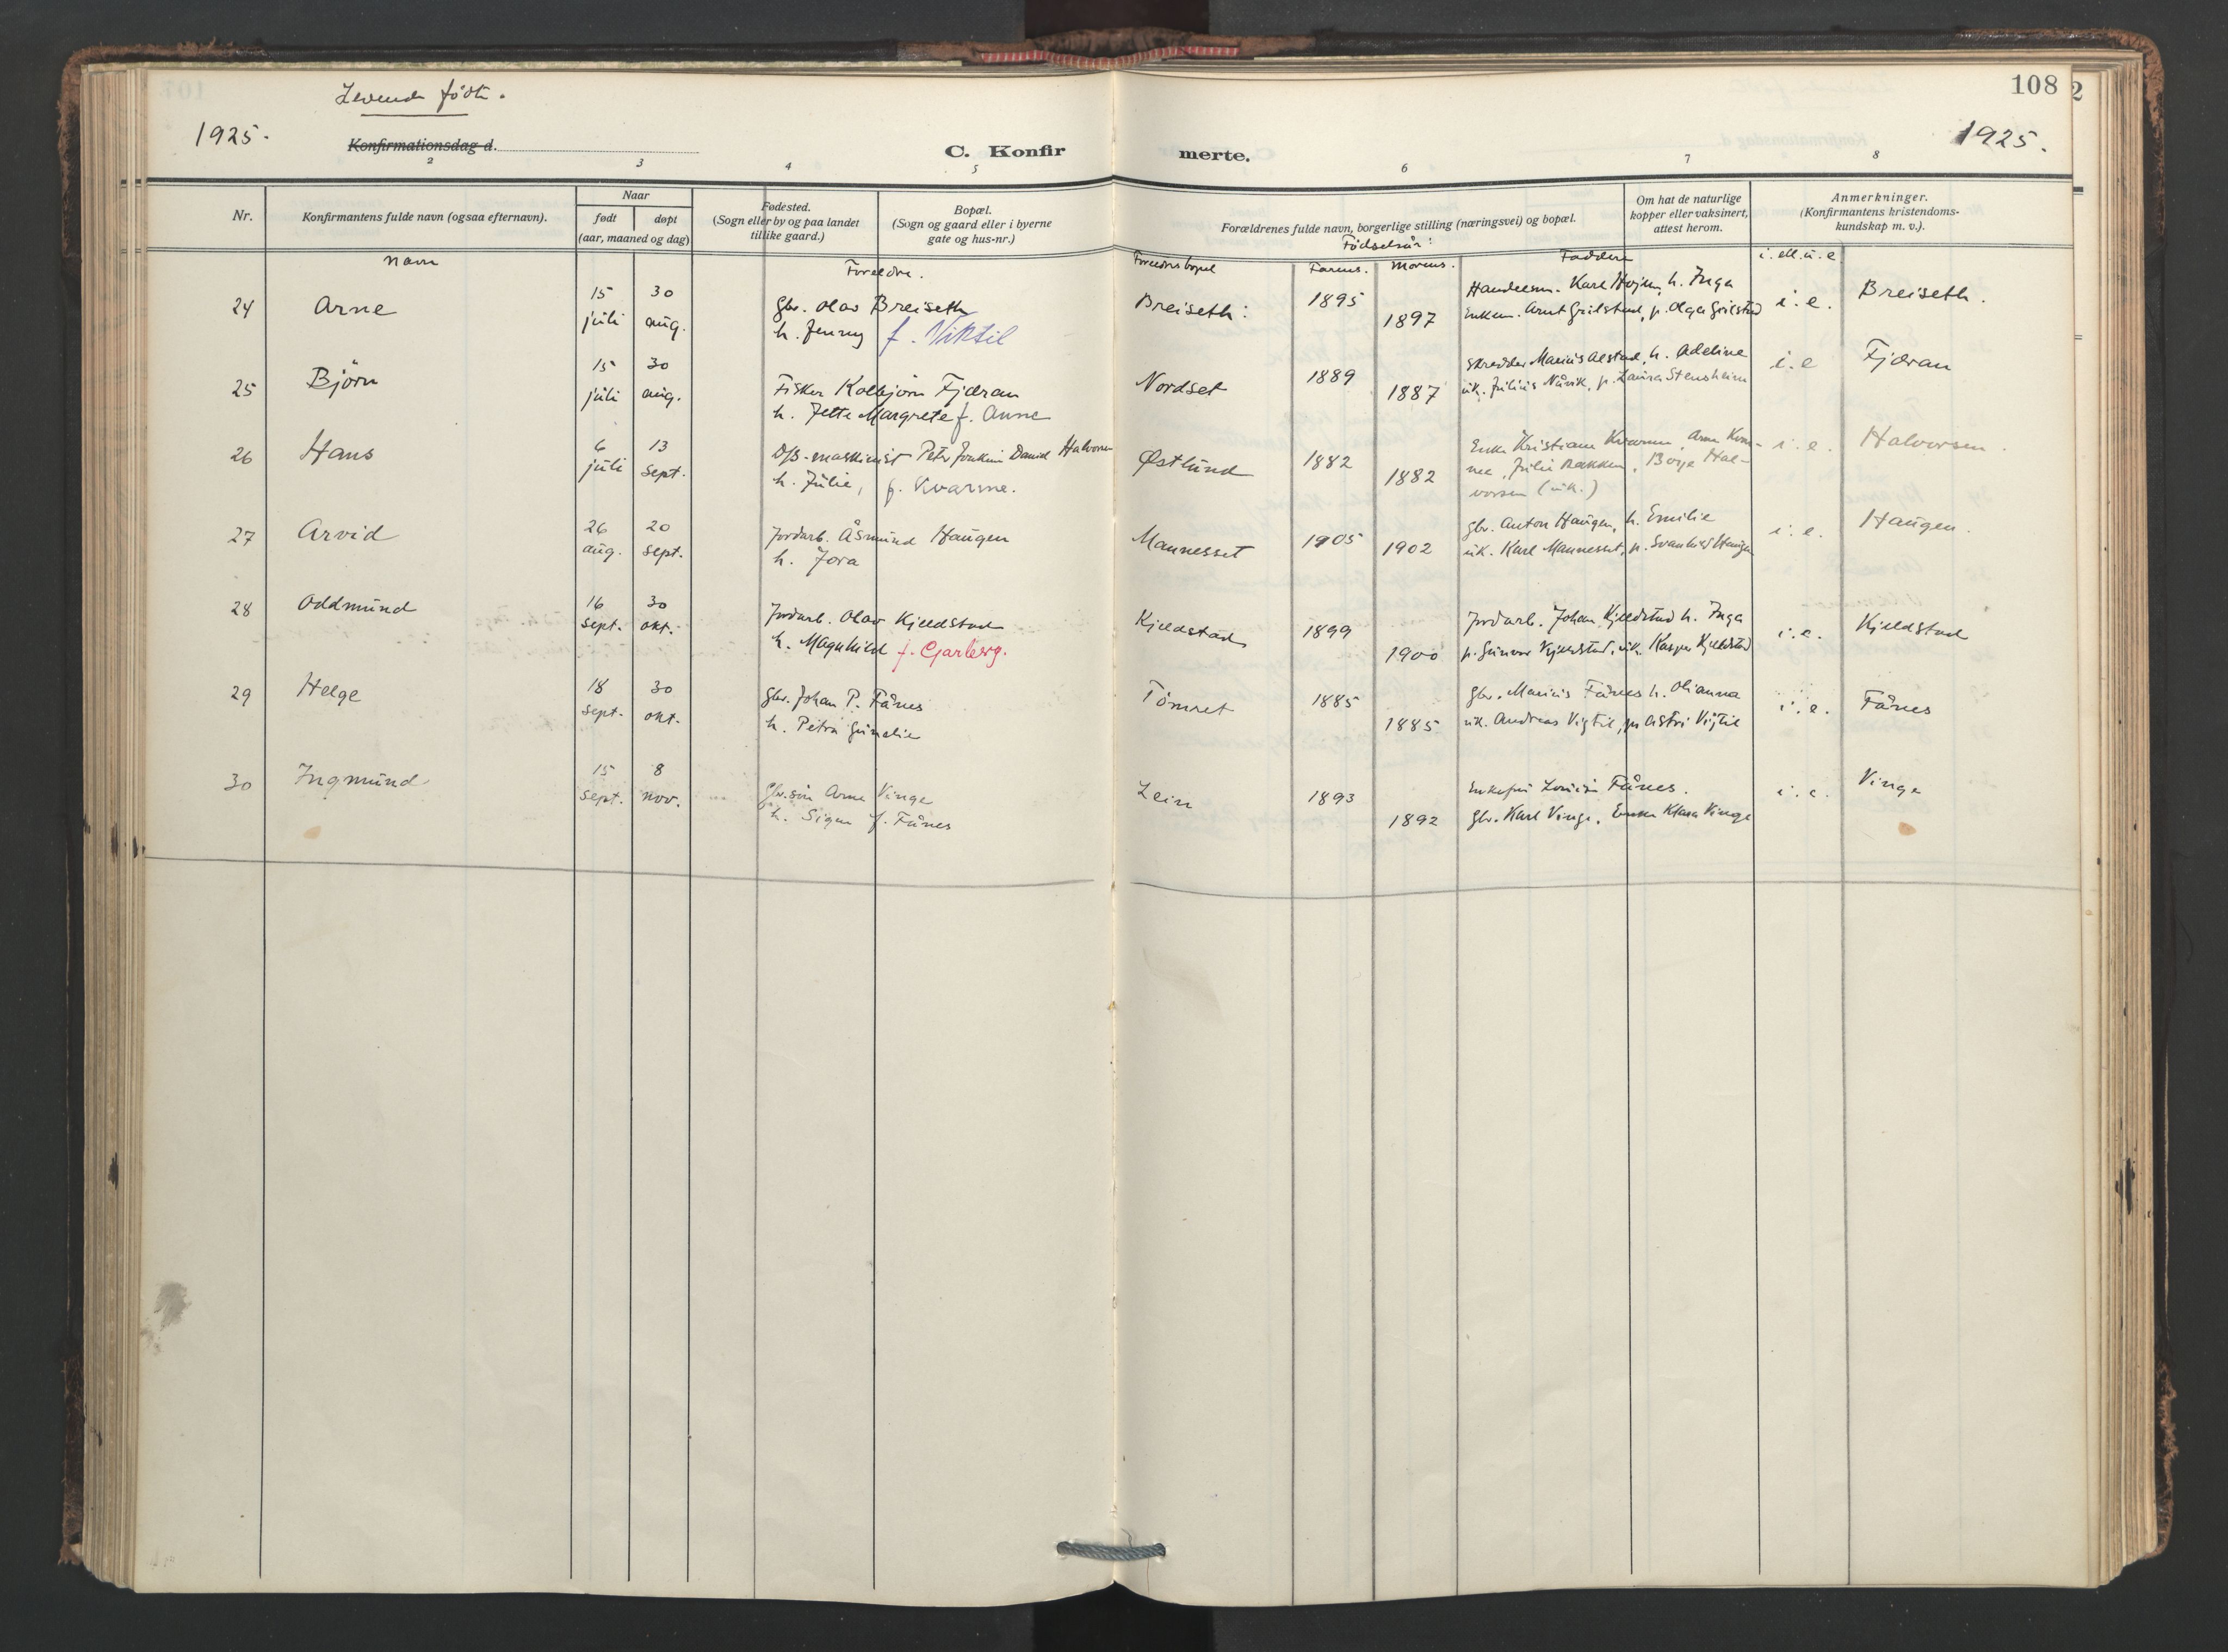 108
Levende födte.
1925.
1925.
Konfirmationsdag d.
C. Konfir
merte.
2 3 4 5 6 7 8
Nr.
Konfirmantens fulde navn (ogsaa efternavn).
Naar
født døpt
(aar, maaned og dag)
Fødested.
(Sogn eller by og paa landet
tillike gaard.)
Bopæl.
(Sogn og gaard eller i byerne
gate og hus-nr.)
Forældrenes fulde navn, borgerlige stilling (næringsvei) og bopæl.
Om hat de naturlige
kopper eller vaksinert,
attest herom.
Anmerkninger.
(Konfirmantens kristendoms-
kundskap m. v.).
Navn
Foreldre.
Foreldres bopel
Födselsår:
Farens. Morens.
Faddere
i. ell. u. e.
24 Arne
15 juli
30 aug.
Gbr. Olav Breiseth
h. Jenny f. Viktil
Breiseth: 1895 1897
Karl h. Inga
Arnt Grilstad, p. Olga Grilstad
i. e. Breiseth.
25 Björn
15 juli
30 aug.
Fisker Kolbjörn Fjæran
h. Jette Margrete f. Aune
Nordset 1889 1887
Skredder Marius Alstad, h. Adeline
uk. Julius Nåvik, p. Laura Stensheim
i. e Fjæran
26 Hans
6 juli
13 sept.
D/S-maskinist Peter Joakim Daniel Halvorsen
h. Julie, f. Kvarme.
Østlund 1882 1882
Enke Kristiane Kvarme, Arne Kvar-
me, Julie Bakken, Börje Hal-
vorsen (uk.)
i. e. Halvorsen.
27 Arvid
26 aug.
20 sept.
Jordarb. Åsmund Haugen
h. Jora
Mannesset 1905 1902
gbr. Anton Haugen, h. Emilie
uk. Karl Mannesset, p. Svanhild Haugen
i. e. Haugen.
28 Oddmund
16 sept.
30 okt.
Jordarb. Olav Kjeldstad
h. Magnhild f. Garberg.
Kjeldstad 1899 1900
Jordarb. Johan Kjeldstad h. Inga
p. Gunvor Kjeldstad, uk. Kasper Kjeldstad
i. e. Kjeldstad
29 Helge
18 sept.
30 okt.
Gbr. Johan P. Fånes
h. Petra Gunelie
Tömret 1885 1885
gbr. Marius Fånes h. Olianna
uk. Andreas Vigtil, p. Astri Vigtil
i. e. Fånes
30 Ingmund
15 sept.
8 nov.
Gbr.sön Arne Vinge
h. Signe f. Fånes
Lein 1893 1892
Enkefru Fånes.
gbr. Karl Vinge, Klara Vinge
i. e. Vinge